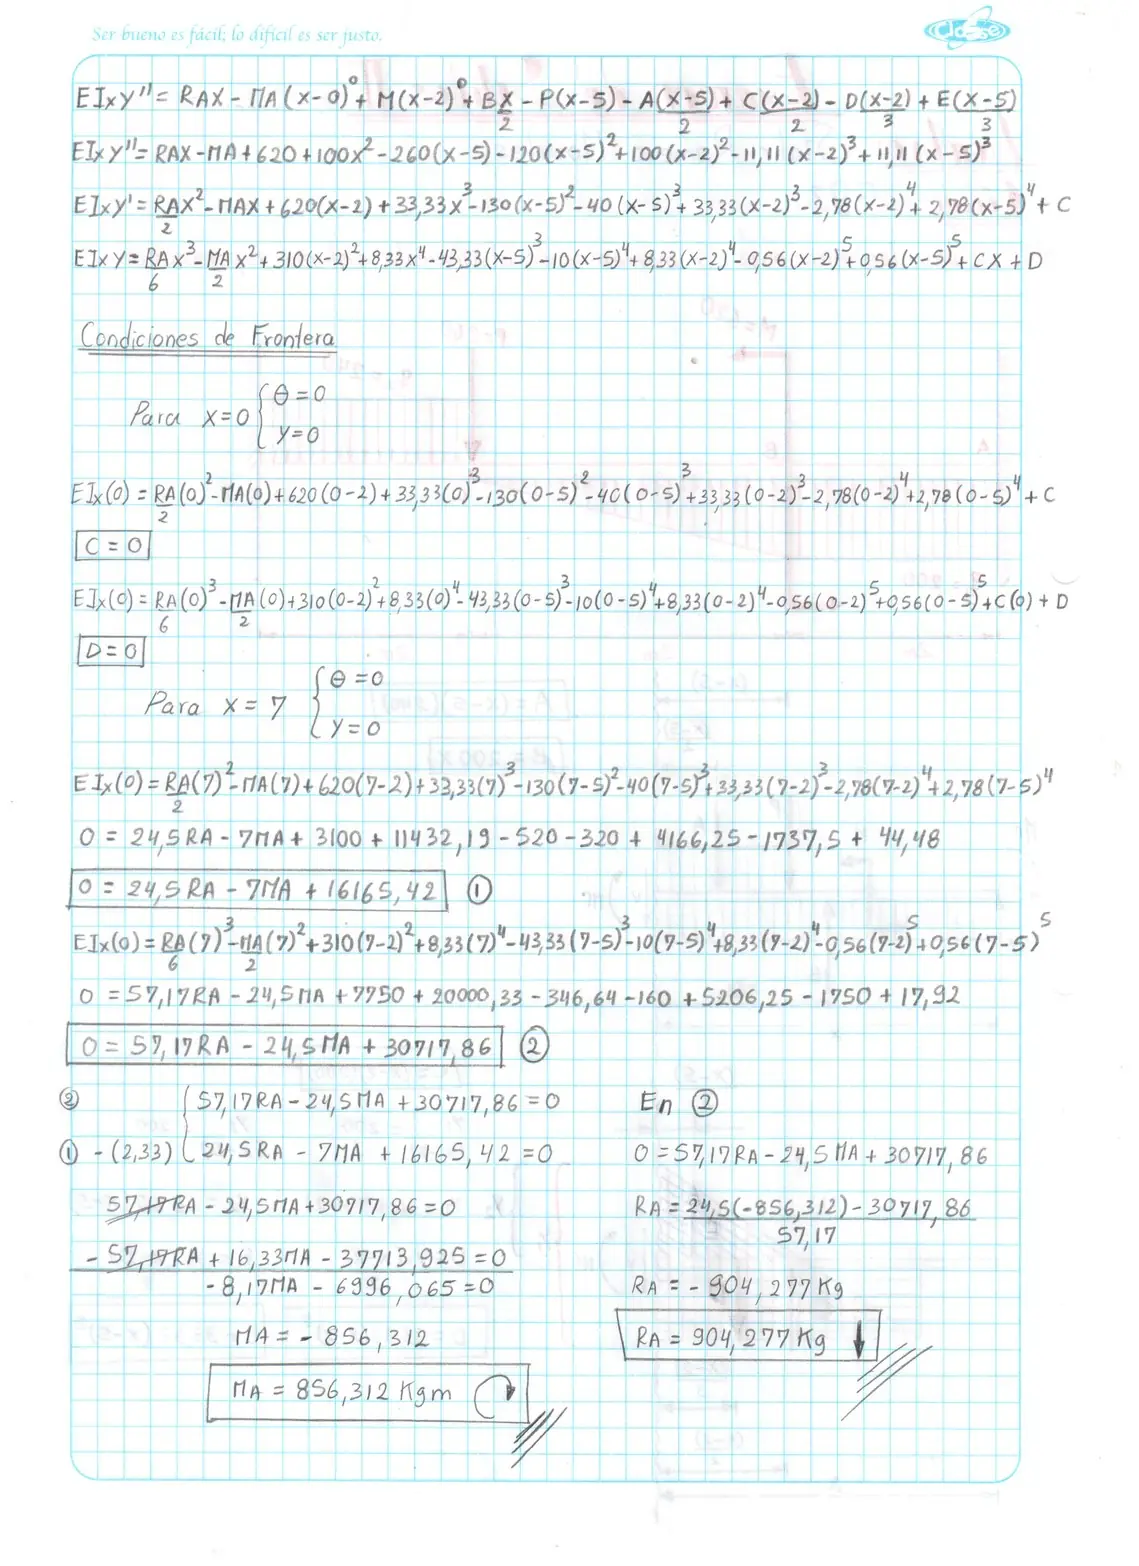 Ser bueno es fácil; lo difícil es ser justo.
Classe
EIxY'' = RAX - MA(x-0)⁰ + M(x-2)⁰ + BX/2 - P(x-5) - A(x-5)/2 + C(x-2)/2 - D(x-2)/3 + E(x-5)/3
EIxY'' = RAX - MA + 620 + 100x² - 260(x-5) - 120(x-5)² + 100(x-2)² - 11,11(x-2)³ + 11,11(x-5)³
EIxY' = RA/2 X² - MAX + 620(x-2) + 33,33x³ - 130(x-5)² - 40(x-5)³ + 33,33(x-2)³ - 2,78(x-2)⁴ + 2,78(x-5)⁴ + C
EIxY = RA/6 x³ - MA/2 x² + 310(x-2)² + 8,33x⁴ - 43,33(x-5)³ - 10(x-5)⁴ + 8,33(x-2)⁴ - 0,56(x-2)⁵ + 0,56(x-5)⁵ + CX + D
Condiciones de Frontera
Para X=0 { θ=0
Y=0
EIx(0) = RA/2 (0)² - MA(0) + 620(0-2) + 33,33(0)³ - 130(0-5)² - 40(0-5)³ + 33,33(0-2)³ - 2,78(0-2)⁴ + 2,78(0-5)⁴ + C
C = 0
EIx(0) = RA/6 (0)³ - MA/2 (0) + 310(0-2)² + 8,33(0)⁴ - 43,33(0-5)³ - 10(0-5)⁴ + 8,33(0-2)⁴ - 0,56(0-2)⁵ + 0,56(0-5)⁵ + C(0) + D
D = 0
Para X = 7 { θ=0
Y=0
EIx(0) = RA/2 (7)² - MA(7) + 620(7-2) + 33,33(7)³ - 130(7-5)² - 40(7-5)³ + 33,33(7-2)³ - 2,78(7-2)⁴ + 2,78(7-5)⁴
0 = 24,5RA - 7MA + 3100 + 11432,19 - 520 - 320 + 4166,25 - 1737,5 + 44,48
0 = 24,5RA - 7MA + 16165,42 ①
EIx(0) = RA/6 (7)³ - MA/2 (7)² + 310(7-2)² + 8,33(7)⁴ - 43,33(7-5)³ - 10(7-5)⁴ + 8,33(7-2)⁴ - 0,56(7-2)⁵ + 0,56(7-5)⁵
0 = 57,17RA - 24,5MA + 7750 + 20000,33 - 346,64 - 160 + 5206,25 - 1750 + 17,92
0 = 57,17RA - 24,5MA + 30717,86 ②
② { 57,17RA - 24,5MA + 30717,86 = 0
① -(2,33) 24,5RA - 7MA + 16165,42 = 0
57,17RA - 24,5MA + 30717,86 = 0
- 57,17RA + 16,33MA - 37713,925 = 0
- 8,17MA - 6996,065 = 0
MA = - 856,312
MA = 856,312 Kgm
En ②
0 = 57,17RA - 24,5MA + 30717,86
RA = 24,5(-856,312) - 30717,86
57,17
RA = - 904,277 Kg
RA = 904,277 Kg ↓